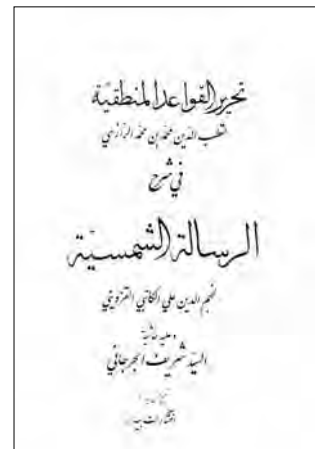 تحرير القواعد المنطقية
لقطب الدين محمد بن محمد الرازي
في شرح
الرسالة الشمسية
لنجم الدين علي الكاتبي القزويني
وعليه حاشية
السيد شريف الجرجاني
انتشارات بيدار